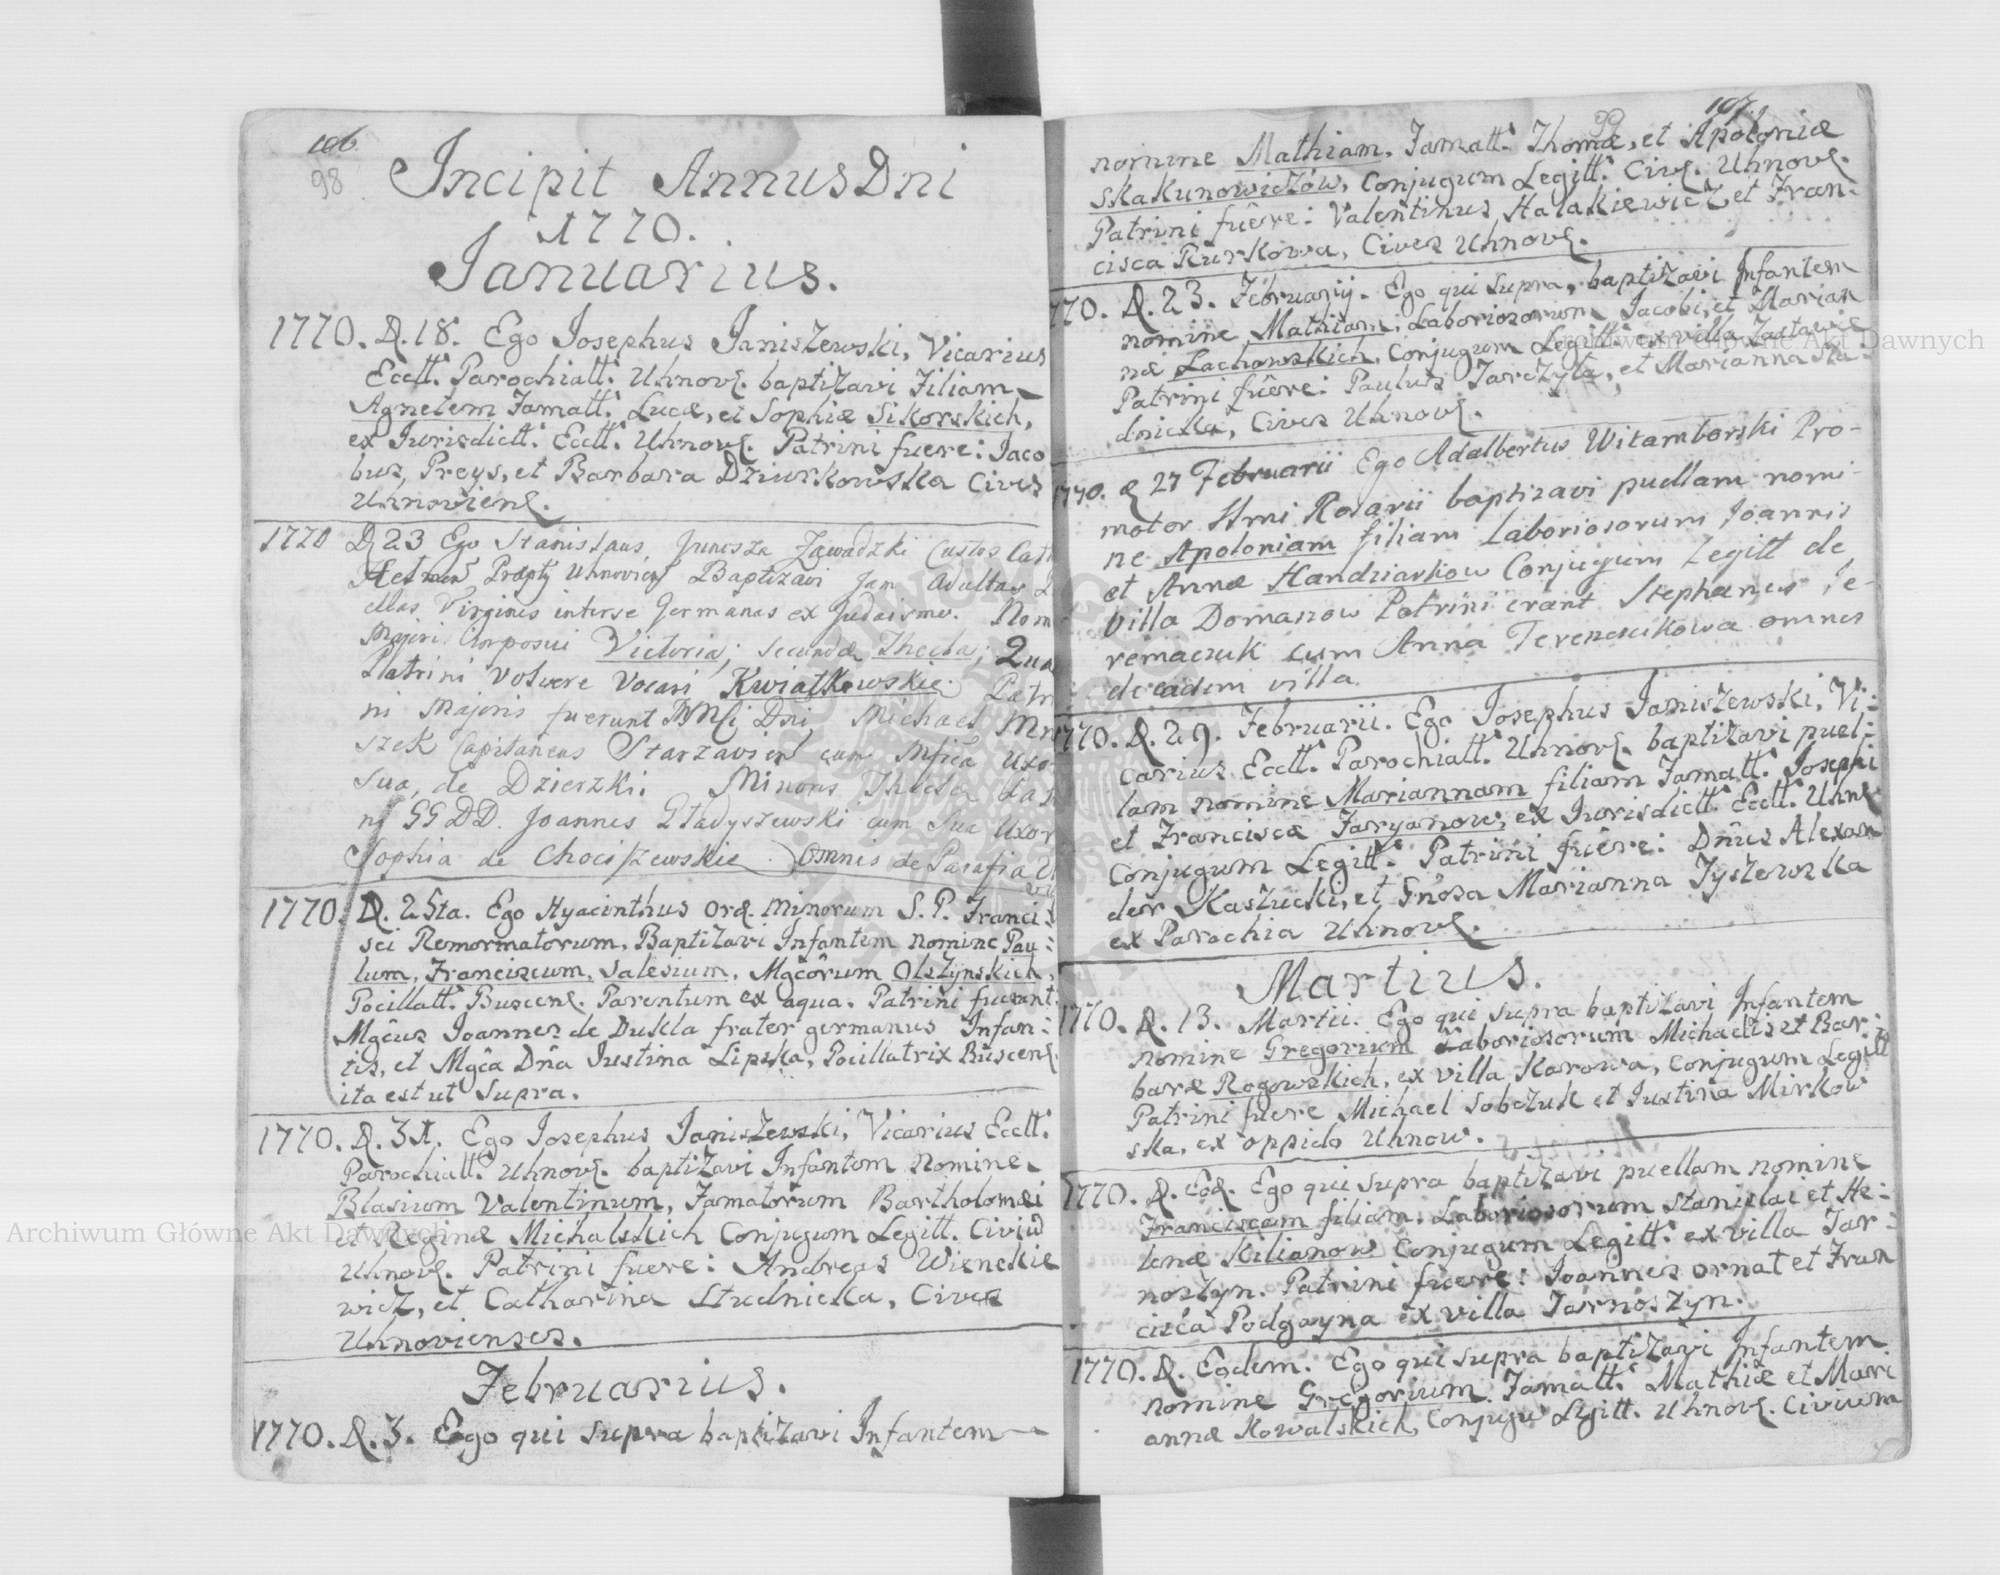 106.
98
Incipit Annus Dni
1770.
Januarius.
1770. D. 18. Ego Josephus Janiszewski, Vicarius
Ecctt. Parochiatt. Uhnov. baptizavi Filiam
Agnetem Famatt. Lucæ, et Sophiæ Sikorskich,
ex Jurisdictt. Ecctt. Uhnov. Patrini fuere: Jaco
bus, Preys, et Barbara Dziurkowska Cives
Uhnovien.
1770 D 23 Ego Stanislaus Junosza Zawadzki Custos
Præpty Uhnovien Baptizavi jam Adultas
ellas Virgines interse Germanas ex Judaismo. Nom
Majori imposui Victoria; secundæ Thecla; Qua
Patrini voluere vocari Kwiatkowskie. Patri
ni Majoris fuerunt Dni Michael
szek Capitaneus cum Mfica Uxo
sua, de Dzierzki. Minoris Thecla
ni GGDD. Joannes Gładyszewski cum sua Uxor
Sophia de Chociszewskie. Omnis de Parafia
1770. D. 25ta. Ego Hyacinthus Ord. Minorum S. P. Franci:
sci Remormatorum, Baptizavi Infantem nomine Pau:
lum, Franciscum, Salesium, Mgcôrum Olszynskich,
Pocillatt. Buscen. Parentum ex aqua. Patrini fuerunt:
Mgĉus Joannes de Dukla frater germanus Infan:
tis, et Mgĉa Dña Justina Lipska, Pocillatrix Buscen.
ita est ut Supra.
1770. D. 31. Ego Josephus Janiszewski, Vicarius Ecctt.
Parochiatt. Uhnov. baptizavi Infantem Nomine
Blasium Valentinum, Famatorum Bartholomæi
et Reginæ Michalskich Conjugum Legitt. Civiu
Uhnov. Patrini fuere: Andreas Wienckie
wicz, et Catharina Studnicka, Cives
Uhnovienses.
Februarius.
1770. D. 3. Ego qui supra baptizavi Infantem
107.
99
nomine Mathiam, Famatt. Thomæ, et Apoloniæ
Skakunowiczów, Conjugum Legitt. Civ. Uhnov.
Patrini fuêre: Valentinus Halakiewicz et Fran:
cisca Rurkowa, Cives Uhnov.
770. D. 23. Februarij. Ego qui supra, baptizavi Infantem
nomine Mathiam, Laboriosorum Jacobi, et Marian
næ Lachowskich, Conjugum Legitt. ex villa Zastawie
Patrini fuêre: Paulus Jarczyła, et Marianna Stu:
dnicka, Cives Uhnov.
1770. D 27 Februarii Ego Adalbertus Witamborski Pro-
motor Ssmi Rosarii baptizavi puellam nomi-
ne Apoloniam filiam Laboriosorum Joannis
et Annæ Handziarkow Conjugum Legitt de
villa Domanow Patrini erant Stephanus Je-
remaczuk cum Anna Terenczukowa omnes
de eadem villa
1770. D. 29. Februarii. Ego Josephus Janiszewski, Vi:
carius Ecctt. Parochiatt. Uhnov. baptizavi puel:
lam nomine Mariannam filiam Famatt. Josephi
et Franciscæ Jaryanow, ex Jurisdictt. Ecctt. Uhn
Conjugum Legitt. Patrini fuêre: Dnûs Alexan
der Kaszucki, et Gnosa Marianna Tyszewska
ex Parochia Uhnov.
Martius.
1770. D. 13. Martii. Ego qui supra baptizavi Infantem
nomine Gregorium Laboriosorum Michaelis et Bar:
baræ Rogowskich, ex villa Karowa, Conjugum Legitt
Patrini fuere Michael Sobczuk et Justina Mirkow
ska, ex oppido Uhnow.
1770. D. Eod. Ego qui supra baptizavi puellam nomine
Franciscam filiam, Laboriosorum Stanislai et He:
lenæ Kilianow Conjugum Legitt. ex villa Tar:
noszyn. Patrini fuere: Joannes Ornat et Fran
cisca Podgayna ex villa Tarnoszyn.
1770. D. Eodem. Ego qui supra baptizavi Infantem
nomine Gregorium. Famatt. Mathiæ et Mari
annæ Kowalskich, Conjugu Legitt. Uhnov. Civium
Archiwum Główne Akt Dawnych
Archiwum Główne Akt Dawnych